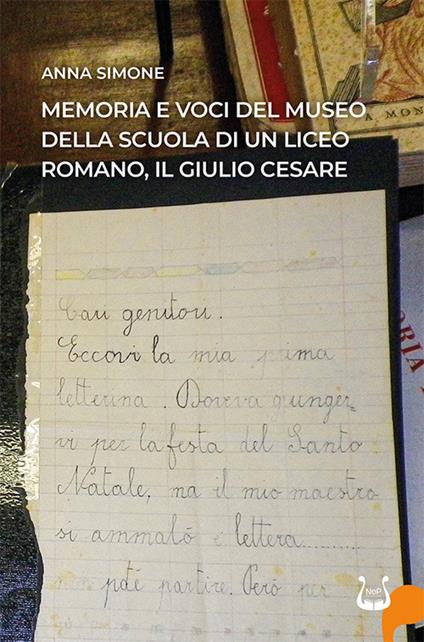 ANNA SIMONE
MEMORIA E VOCI DEL MUSEO
DELLA SCUOLA DI UN LICEO
ROMANO, IL GIULIO CESARE
A MON
ORIA
Cari genitori.
Eccovi la mia prima
letterina. Doveva giunger
vi per la festa del Santo
Natale, ma il mio maestro
si ammalò e lettera..........
non potè partire. Però per
NeP